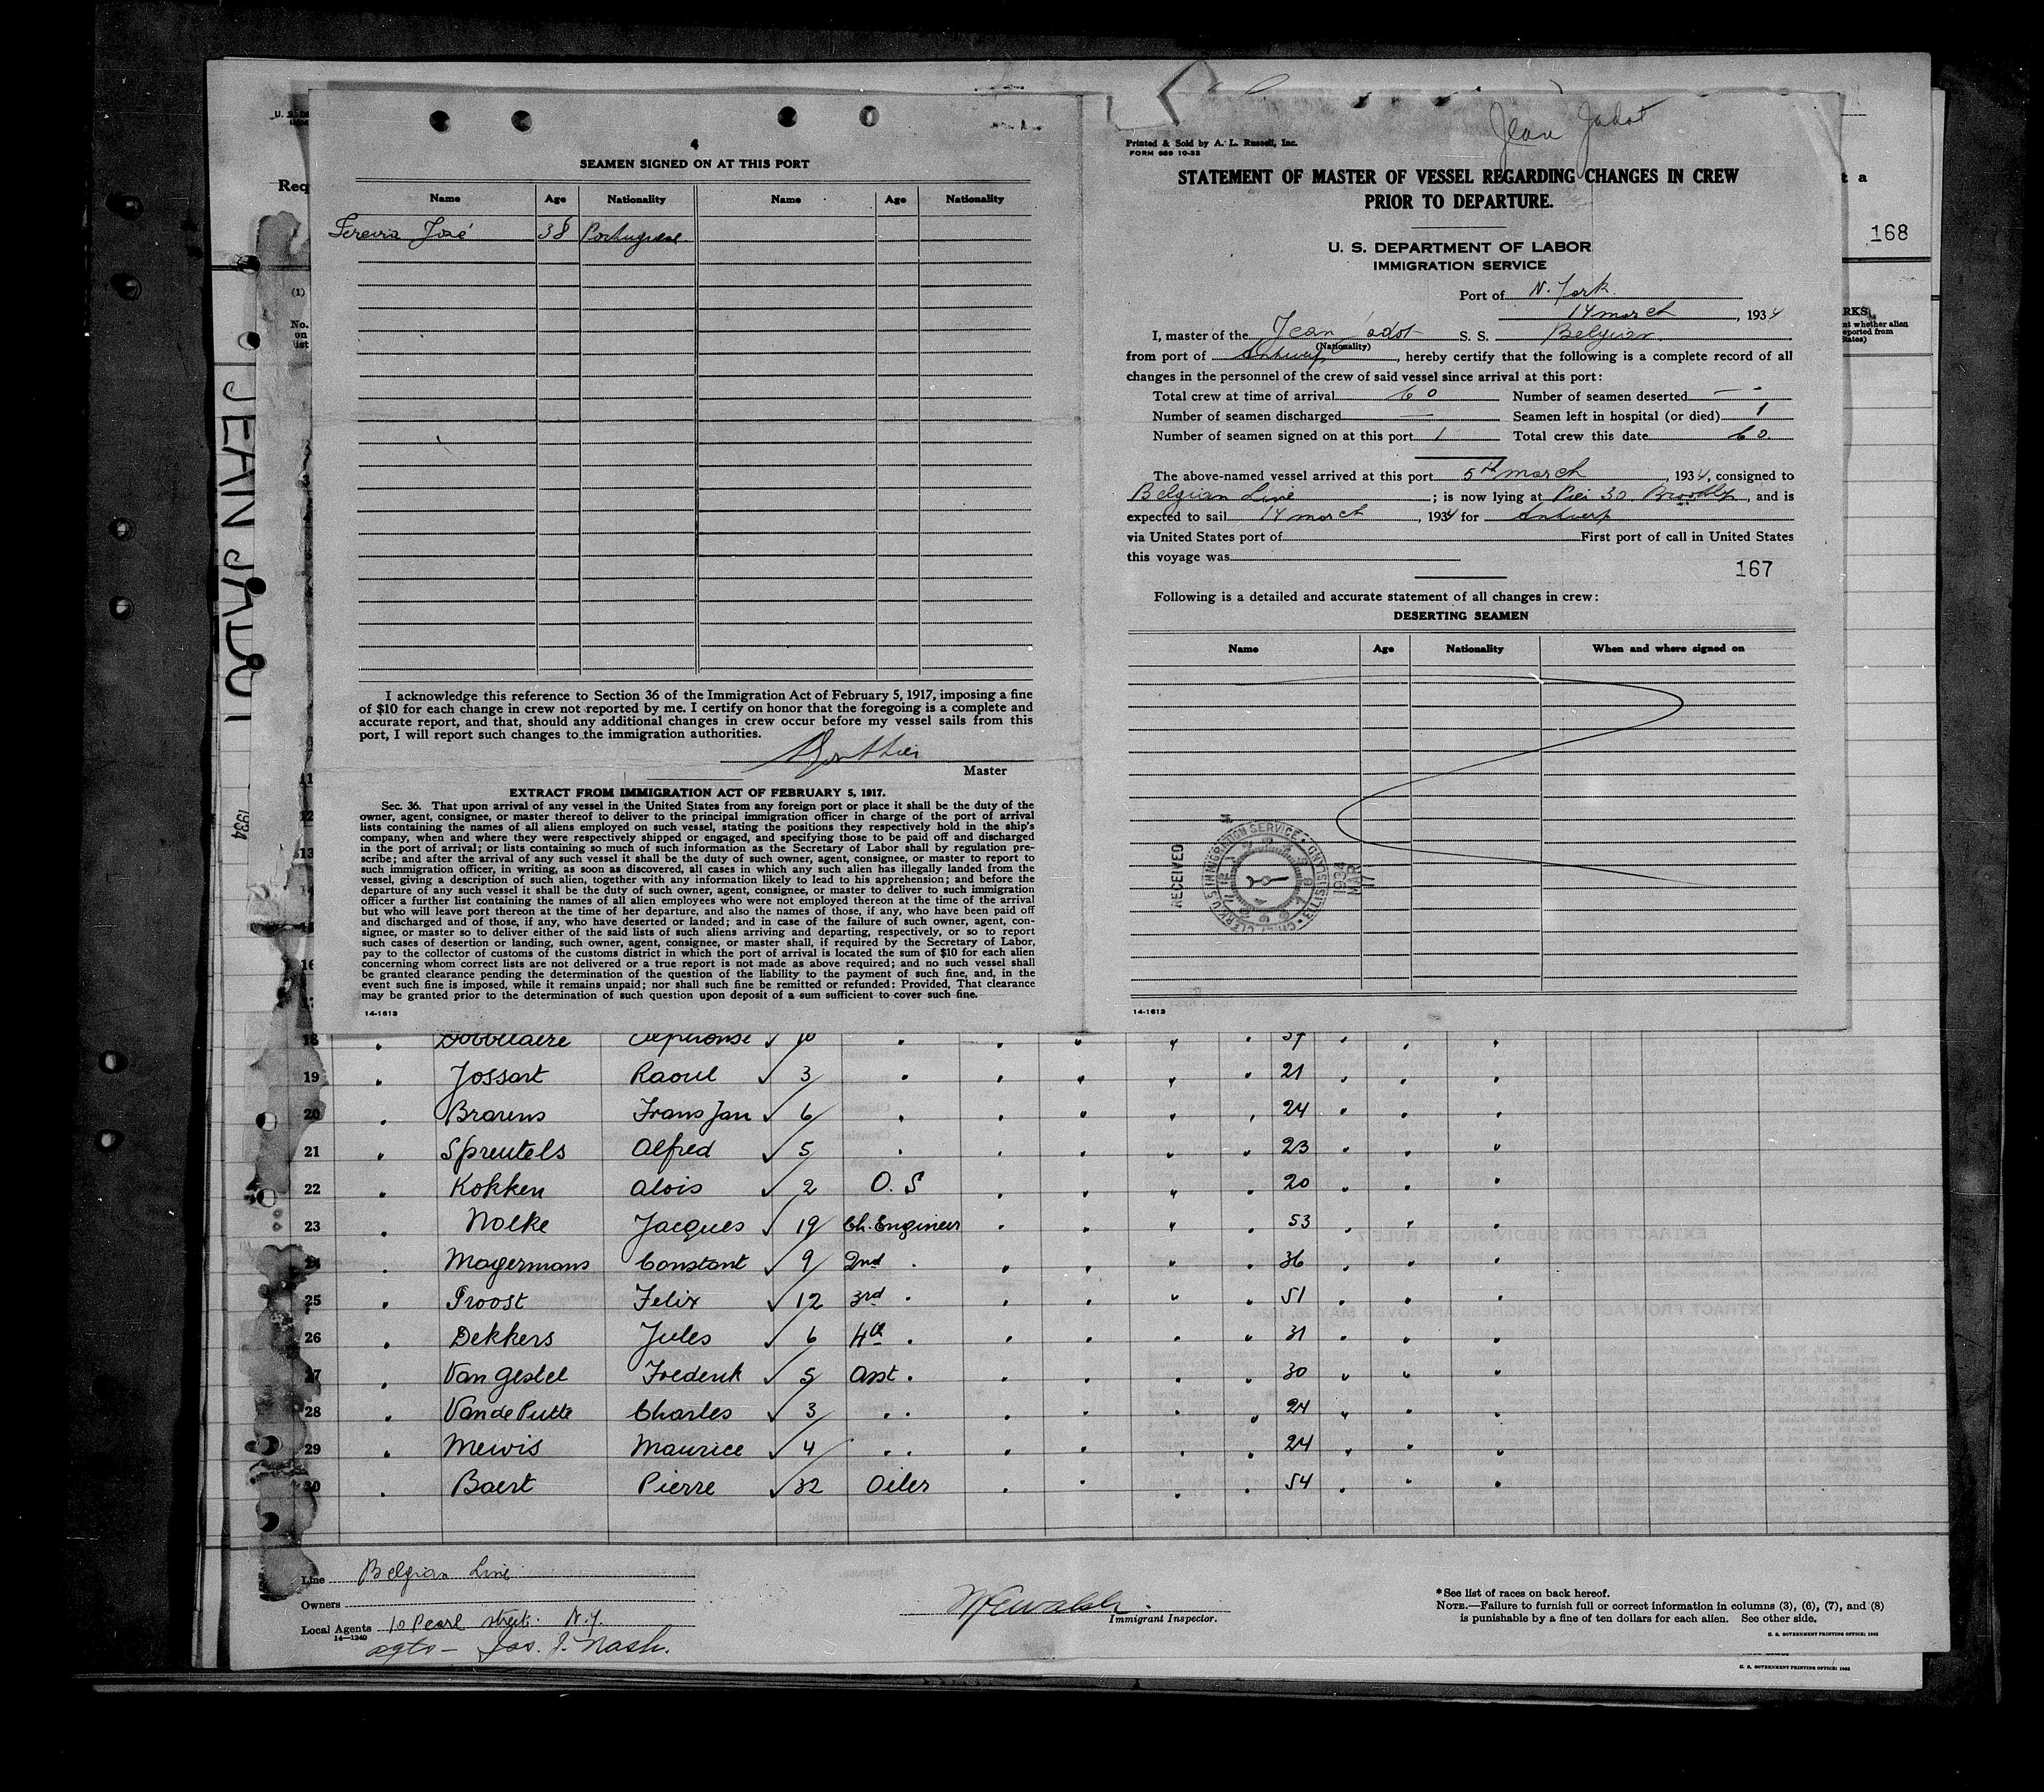 4
SEAMEN SIGNED ON AT THIS PORT
Name Age Nationality Name Age Nationality
José 38 Portuguese
I acknowledge this reference to Section 36 of the Immigration Act of February 5, 1917, imposing a fine
of $10 for each change in crew not reported by me. I certify on honor that the foregoing is a complete and
accurate report, and that, should any additional changes in crew occur before my vessel sails from this
port, I will report such changes to the immigration authorities.
Master
EXTRACT FROM IMMIGRATION ACT OF FEBRUARY 5, 1917.
Sec. 36. That upon arrival of any vessel in the United States from any foreign port or place it shall be the duty of the
owner, agent, consignee, or master thereof to deliver to the principal immigration officer in charge of the port of arrival
lists containing the names of all aliens employed on such vessel, stating the positions they respectively hold in the ship's
company, when and where they were respectively shipped or engaged, and specifying those to be paid off and discharged
in the port of arrival; or lists containing so much of such information as the Secretary of Labor shall by regulation pre-
scribe; and after the arrival of any such vessel it shall be the duty of such owner, agent, consignee, or master to report to
such immigration officer, in writing, as soon as discovered, all cases in which any such alien has illegally landed from the
vessel, giving a description of such alien, together with any information likely to lead to his apprehension; and before the
departure of any such vessel it shall be the duty of such owner, agent, consignee, or master to deliver to such immigration
officer a further list containing the names of all alien employees who were not employed thereon at the time of the arrival
but who will leave port thereon at the time of her departure, and also the names of those, if any, who have been paid off
and discharged and of those, if any, who have deserted or landed; and in case of the failure of such owner, agent, con-
signee, or master so to deliver either of the said lists of such aliens arriving and departing, respectively, or so to report
such cases of desertion or landing, such owner, agent, consignee, or master shall, if required by the Secretary of Labor,
pay to the collector of customs of the customs district in which the port of arrival is located the sum of $10 for each alien
concerning whom correct lists are not delivered or a true report is not made as above required; and no such vessel shall
be granted clearance pending the determination of the question of the liability to the payment of such fine, and, in the
event such fine is imposed, while it remains unpaid; nor shall such fine be remitted or refunded: Provided, That clearance
may be granted prior to the determination of such question upon deposit of a sum sufficient to cover such fine.
14-1613
Jean Jadot
Printed & Sold by A. L. Russell, Inc.
FORM 689 10-32
STATEMENT OF MASTER OF VESSEL REGARDING CHANGES IN CREW
PRIOR TO DEPARTURE.
U. S. DEPARTMENT OF LABOR
IMMIGRATION SERVICE
Port of N. York
14 march, 1934
I, master of the Jean Jadot S. S. Belgian
(Nationality)
from port of Antwerp, hereby certify that the following is a complete record of all
changes in the personnel of the crew of said vessel since arrival at this port:
Total crew at time of arrival 60 Number of seamen deserted —
Number of seamen discharged — Seamen left in hospital (or died) 1
Number of seamen signed on at this port 1 Total crew this date 60.
The above-named vessel arrived at this port 5th march, 1934, consigned to
Belgian Line; is now lying at Pier 30 Brooklyn, and is
expected to sail 14 march, 1934 for Antwerp
via United States port of First port of call in United States
this voyage was
167
Following is a detailed and accurate statement of all changes in crew:
DESERTING SEAMEN
Name Age Nationality When and where signed on
RECEIVED
CHIEF CLERK U.S. IMMIGRATION SERVICE ELLIS ISLAND
1934 MAR
14-1613
168
JEAN JADOT
1934
18 Dobbelaere Alphonse 10
19 Jossart Raoul 3 21
20 Brarens Frans Jan 6 24
21 Spreutels Alfred 5 23
22 Kokken Alois 2 O. S 20
23 Nolke Jacques 19 Ch. Engineer 53
24 Magermans Constant 9 2nd 36
25 Proost Felix 12 3rd 51
26 Dekkers Jules 6 4th 31
27 Van Gestel Frederik 5 Asst. 30
28 Van de Putte Charles 3 24
29 Mewis Maurice 4 24
30 Baert Pierre 32 Oiler 54
Line Belgian Line
Owners
Local Agents 10 Pearl street. N.Y.
14—1240
agts — Jas. J. Nash.
Immigrant Inspector.
*See list of races on back hereof.
NOTE.—Failure to furnish full or correct information in columns (3), (6), (7), and (8)
is punishable by a fine of ten dollars for each alien. See other side.
U. S. GOVERNMENT PRINTING OFFICE: 1932
U. S. GOVERNMENT PRINTING OFFICE: 1932